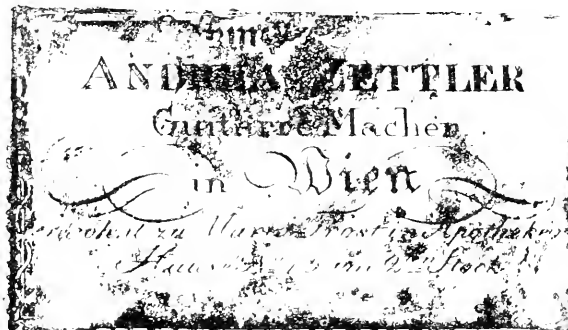 ANDREA ZETTLER
Guitarre Macher
in Wien
zu Maria Trost in Apotheker
Haus im 2ten Stock